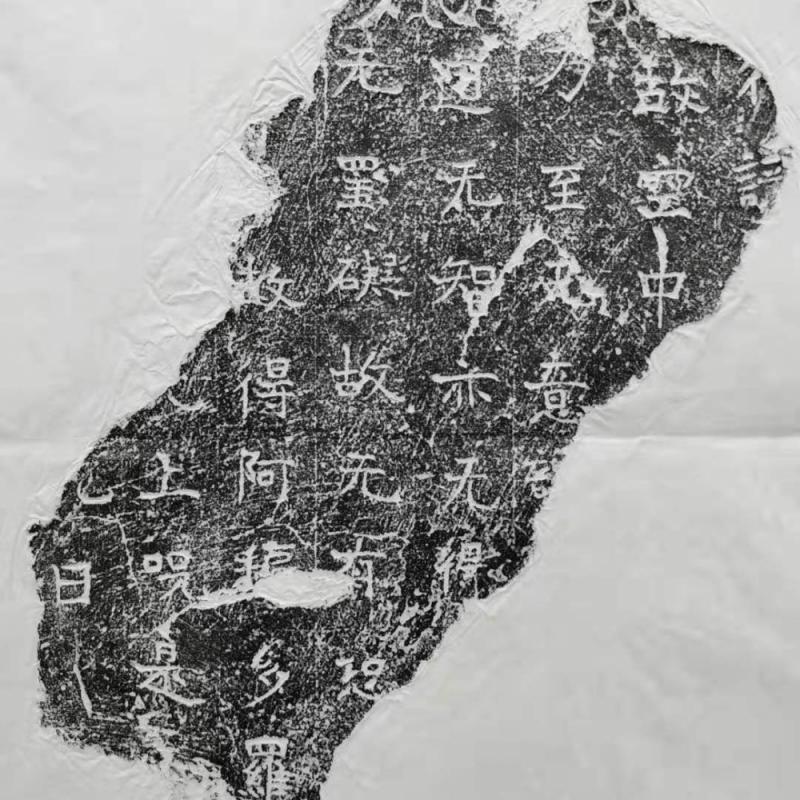 故空中
乃至无意
道无智亦无得
无罣礙故无有恐
故得阿耨多羅
上呪是
曰